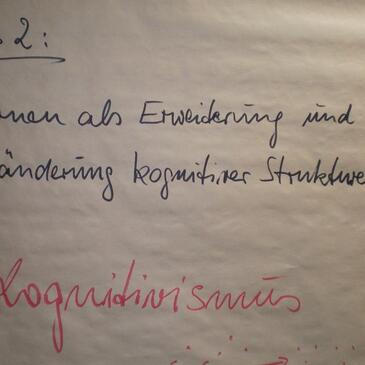 2:
nen als Erweiterung und
änderung kognitiver Strukture
Kognitivismus